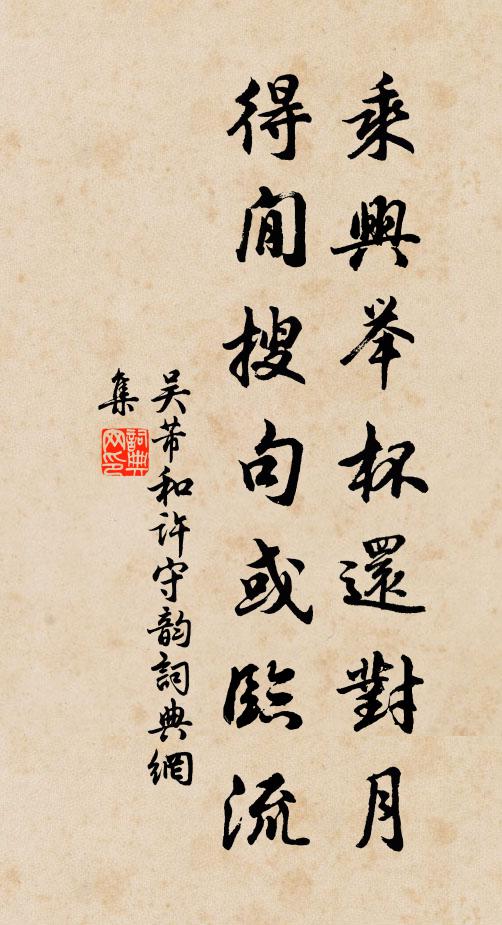 乘興举杯還對月
得閒搜句或臨流
吴芾和許守韵詞典網
集
詞典
网印